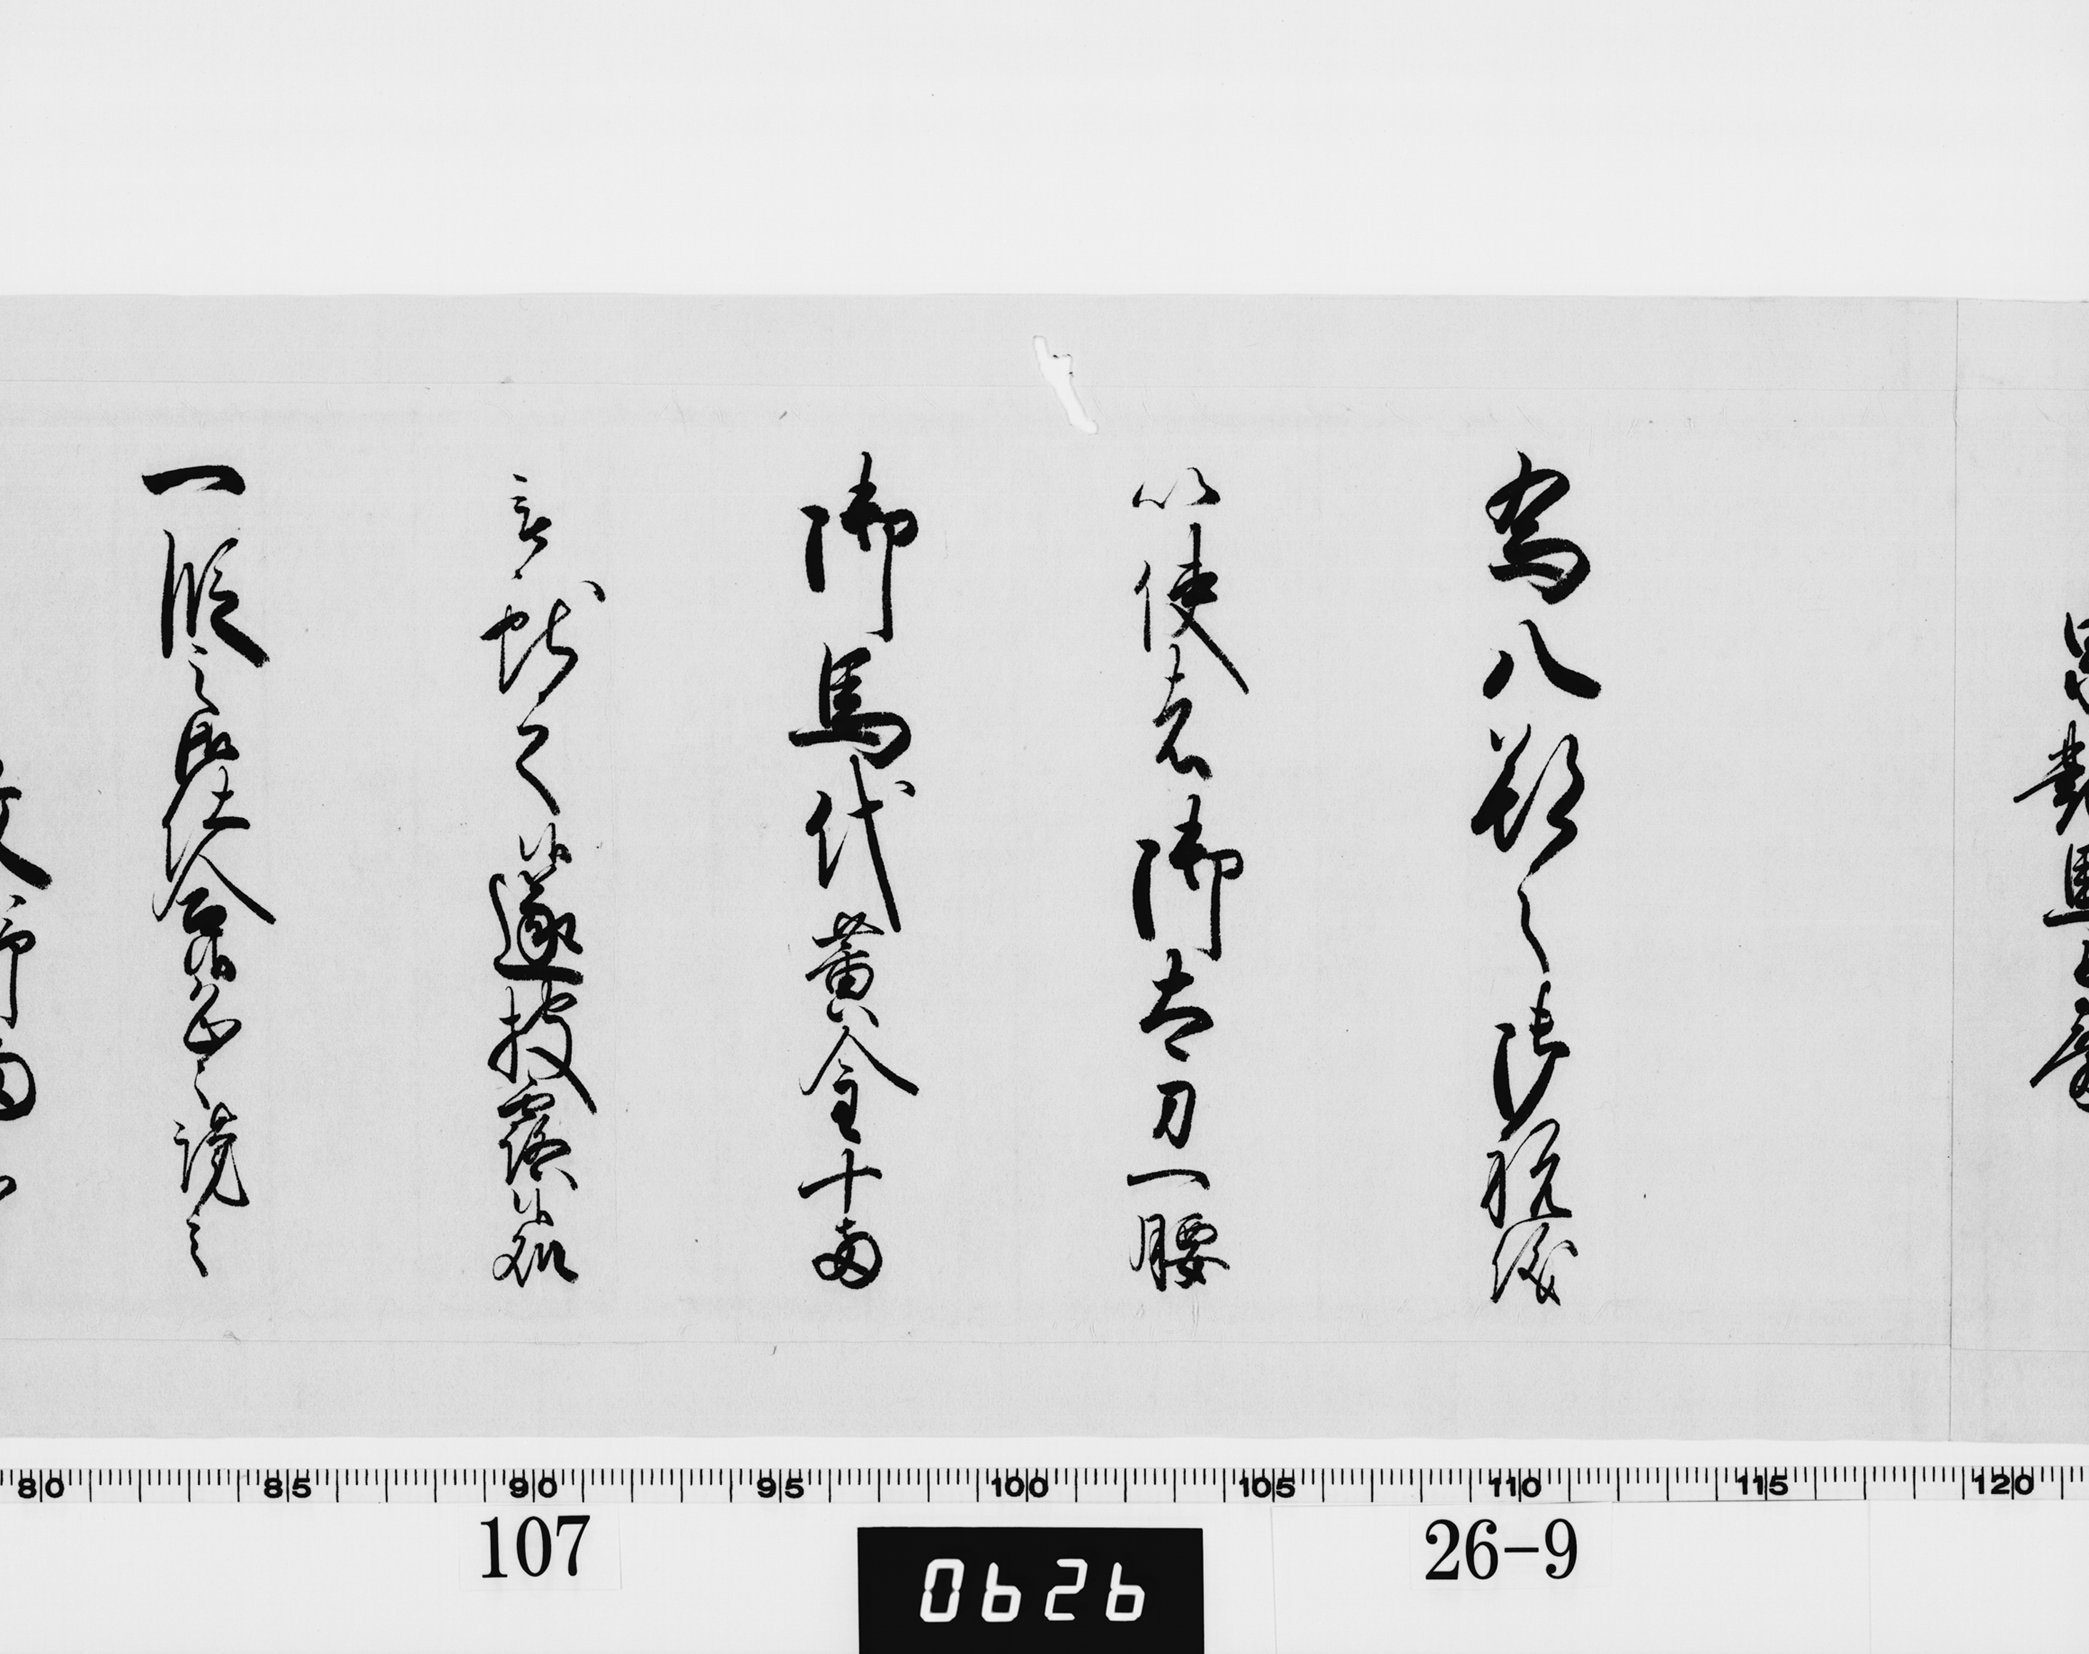 為八朔之御祝儀
以使者御太刀一腰
御馬代黄金十両
献之候遂披露候処
一段之御仕合候恐々謹言
80 85 90 95 100 105 110 115 120
107
26-9
0626